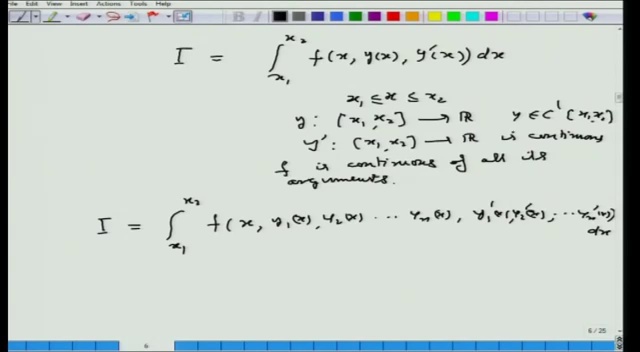 File Edit View Insert Actions Tools Help
B I
I = ∫_{x₁}^{x₂} f(x, y(x), y'(x)) dx
x₁ ≤ x ≤ x₂
y : [x₁, x₂] → ℝ y ∈ C'[x₁, x₂]
y' : [x₁, x₂] → ℝ is continuous
f is continuous of all its
arguments.
I = ∫_{x₁}^{x₂} f(x, y₁(x), y₂(x) ... yₙ(x), y₁'(x), y₂'(x), ... yₙ'(x))
dx
6 / 25
6